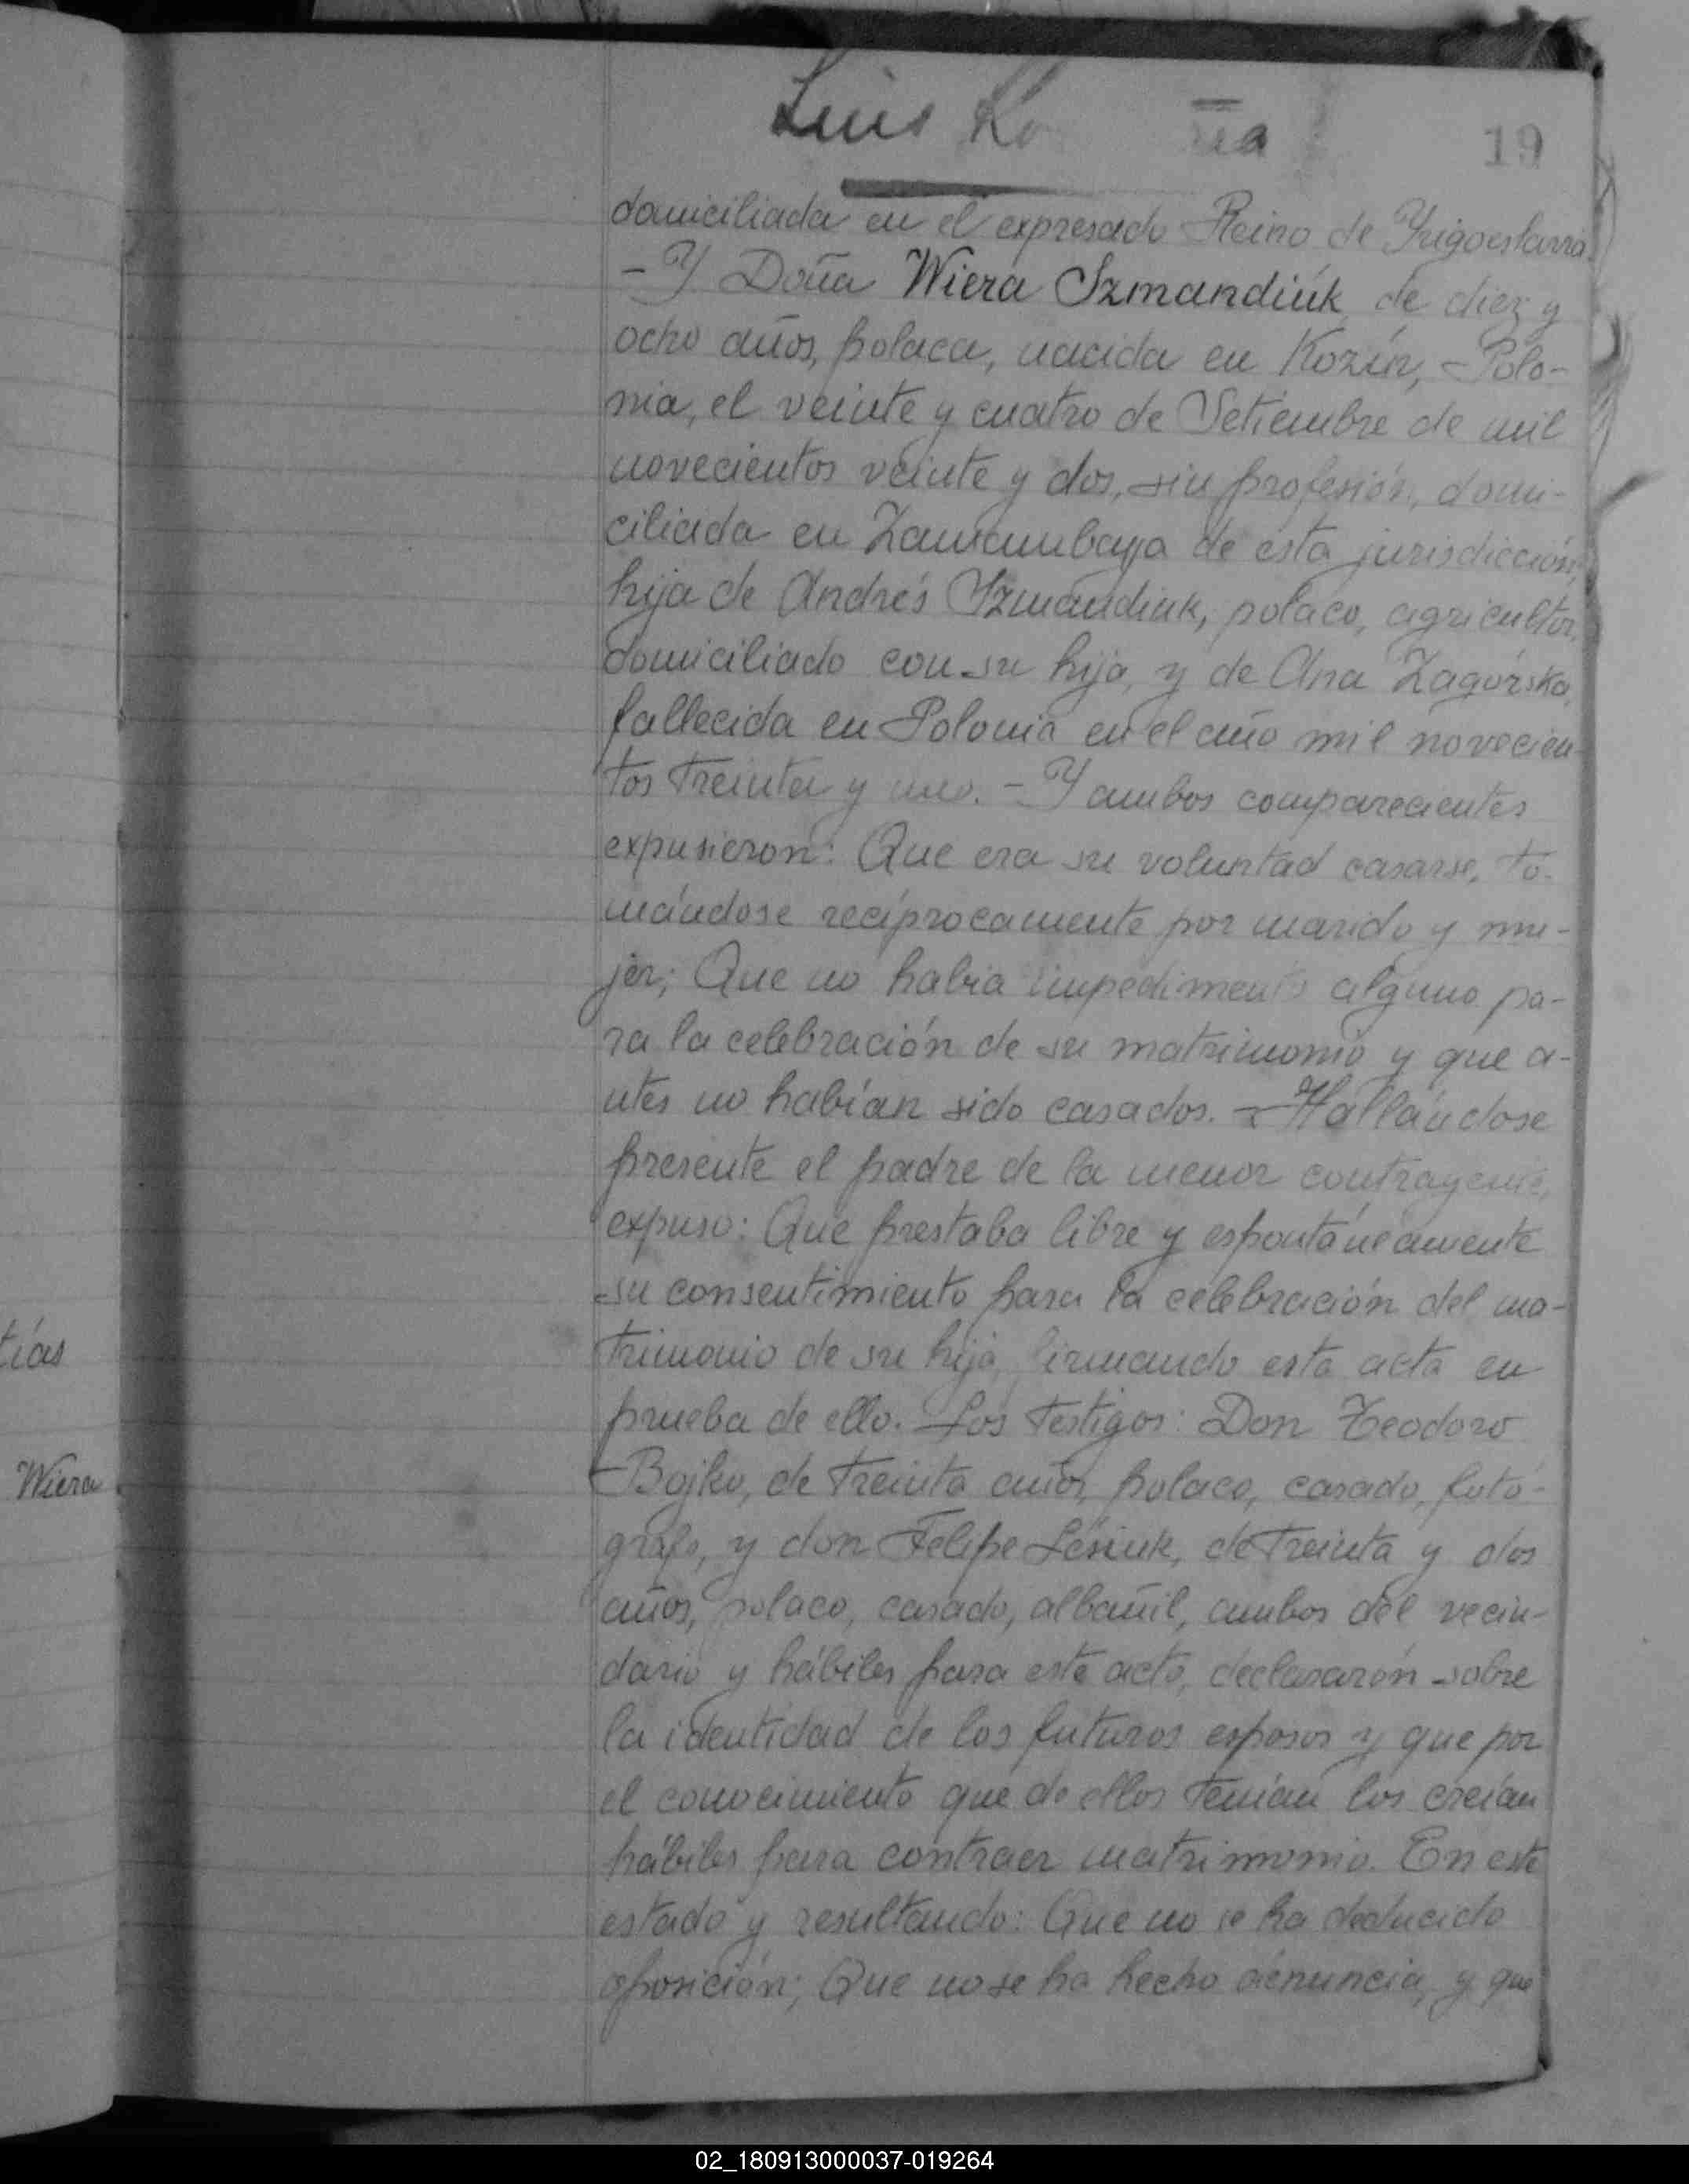 Luis Ko
19
domiciliada en el expresado Reino de Yugoeslavia.
- Y Doña Wiera Szmandiúk, de diez y
ocho años, polaca, nacida en Kozín, Polo-
nia, el veinte y cuatro de Setiembre de mil
novecientos veinte y dos, sin profesión, domi-
ciliada en de esta jurisdicción,
hija de Andrés Szmandiuk, polaco, agricultor,
domiciliado con su hija, y de Ana Zagórska,
fallecida en Polonia en el año mil novecien-
tos treinta y uno. - Y ambos comparecientes
expusieron: Que era su voluntad casarse, to-
mándose recíprocamente por marido y mu-
jer; Que no habia impedimento alguno pa-
ra la celebración de su matrimonio y que a-
ntes no habían sido casados. - Hallándose
presente el padre de la menor contrayente,
expuso: Que prestaba libre y espontáneamente
su consentimiento para la celebración del ma-
trimonio de su hija, firmando esta acta en
prueba de ello. Los testigos: Don Teodoro
Bojko, de treinta años, polaco, casado, fotó-
grafo, y don Felipe Lesiuk, de treinta y dos
años, polaco, casado, albañil, ambos del vecin-
dario y hábiles para este acto, declararón sobre
la identidad de los futuros esposos y que por
el conocimiento que de ellos tenían los creían
hábiles para contraer matrimonio. En este
estado y resultando: Que no se ha deducido
oposición; Que no se ha hecho denuncia, y que
tías
Wiera
02_180913000037-019264